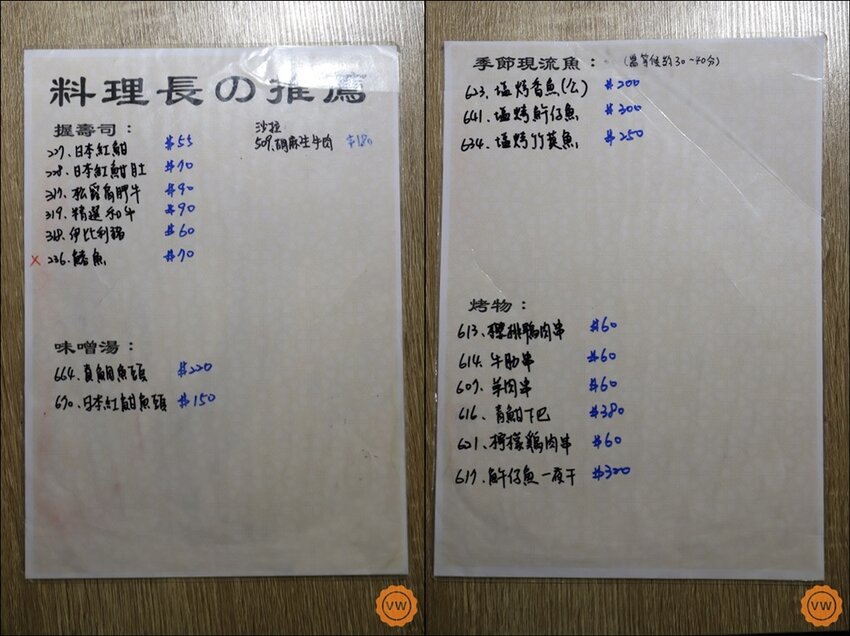 料理長の推薦
握壽司：
227.日本紅魽 $55
228.日本紅魽肚 $70
317.松露肩胛牛 $90
319.精選和牛 $90
318.伊比利豬 $60
X 236.鰭魚 $70
沙拉
509.胡麻生牛肉 $180
味噌湯：
664.真鯛魚頭 $220
670.日本紅魽魚頭 $150
VW
季節現流魚： (需等候約30~40分)
623.塩烤香魚(公) $200
641.塩烤魽仔魚 $300
634.塩烤竹莢魚 $250
烤物：
613.櫻桃鴨肉串 $60
614.牛肋串 $60
607.羊肉串 $60
616.青魽下巴 $380
621.檸檬雞肉串 $60
617.魚干仔魚一夜干 $300
VW